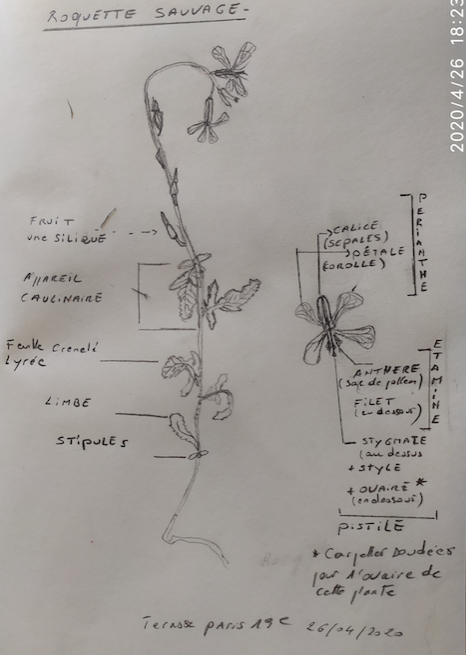 ROQUETTE SAUVAGE-
2020/4/26 18:23
FRUIT
une SILIQUE
APPAREIL
CAULINAIRE
Feuille Crenelé
Lyrée
LIMBE
STIPULES
CALICE
(SEPALES)
PÉTALE
(COROLLE)
PERIANTHE
ANTHERE
(sac de pollen)
FILET
(au dessous)
ETAMINE
STYGMATE
(au dessus
+ STYLE
+ OVAIRE *
(en dessous)
PISTILE
* Carpelles soudées
pour l'ovaire de
cette plante
Terrasse PARIS 19e 26/04/2020